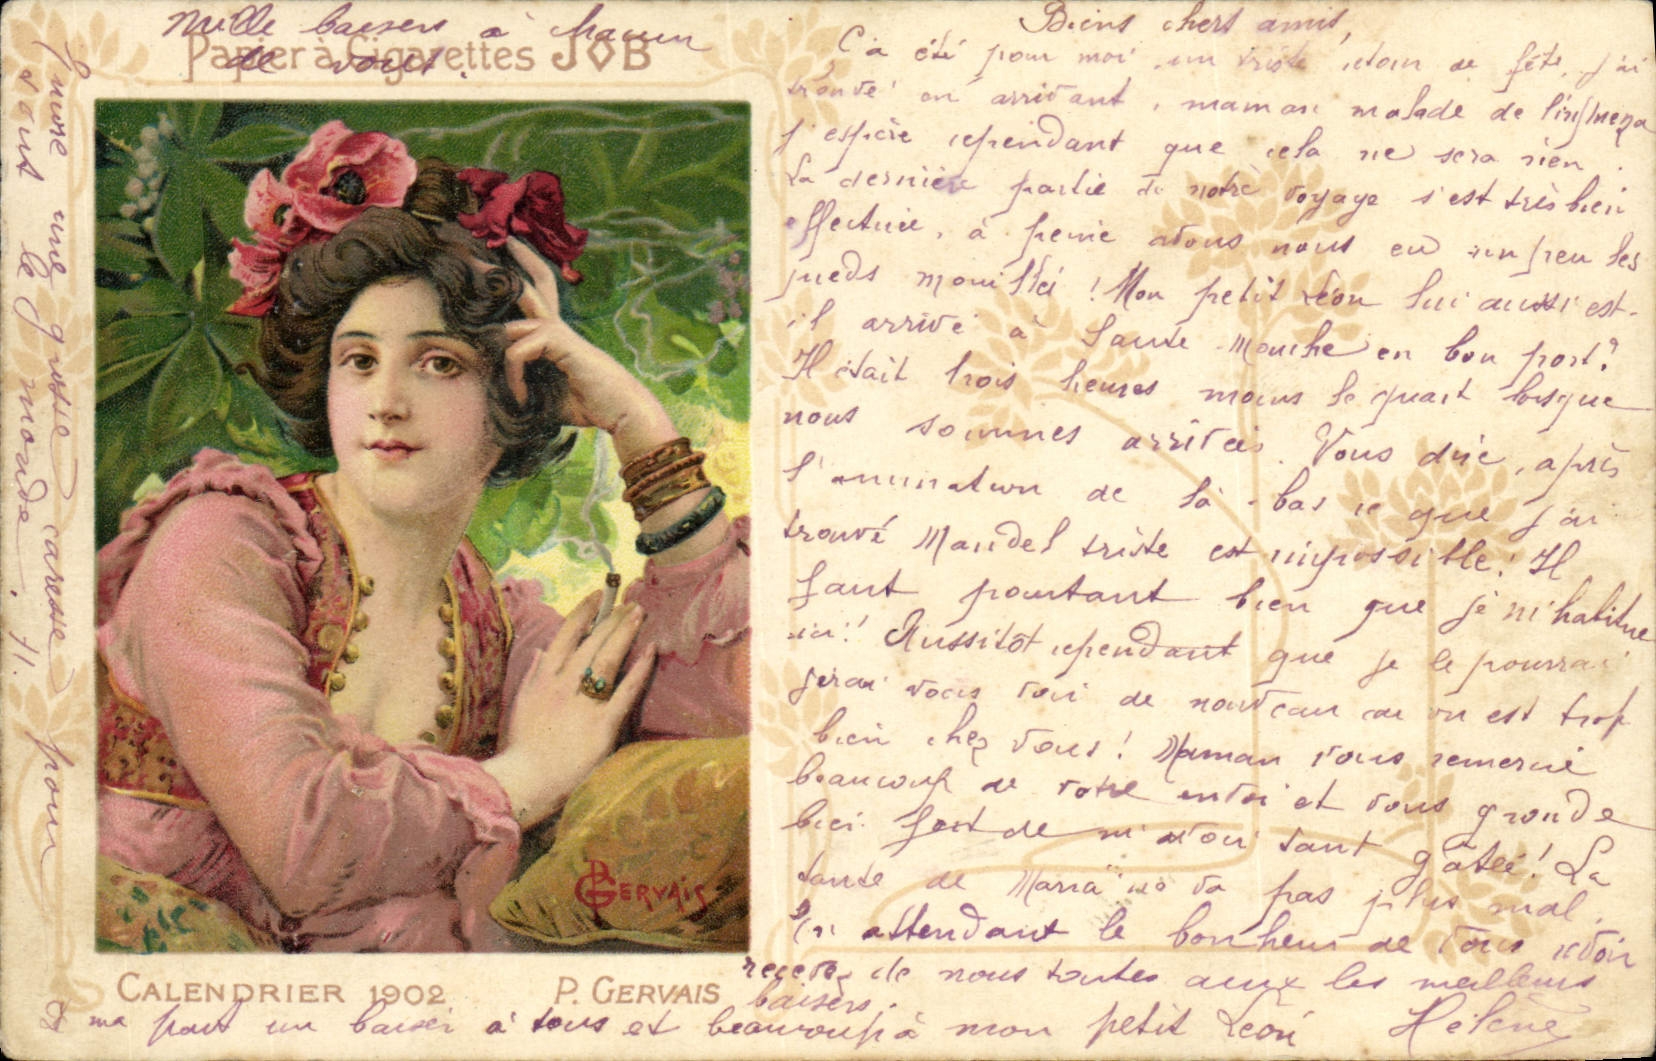 Mille baisers à chacun
de vous.
Papier à Cigarettes JOB
Biens chers amis,
Ça été pour moi un triste retour de fête, j'ai
trouvé en arrivant, maman malade de l'influenza
j'espère cependant que cela ne sera rien.
La dernière partie de notre voyage s'est très bien
effectuée, à peine avons nous eu un peu les
pieds mouillés! Mon petit Léon lui aussi est-
il arrivé à Sainte Mouche en bon port?
Il était trois heures moins le quart lorsque
nous sommes arrivées. Vous dire, après
l'animation de là-bas ce que j'ai
trouvé Mandel triste est impossible! Il
faut pourtant bien que je m'habitue
ici! Aussitôt cependant que je le pourrai
j'irai vous voir de nouveau car on est trop
bien chez vous! Maman vous remercie
beaucoup de votre envoi et vous gronde
bien fort de m'avoir tant gâtée! La
tante de Maria ne va pas plus mal.
En attendant le bonheur de vous revoir
recevez de nous toutes aux les meilleurs
baisers.
Hélène
GERVAIS
CALENDRIER 1902
P. GERVAIS
ma part un baiser à tous et beaucoup à mon petit Léon
Encore une grosse caresse pour
tout le monde. H.